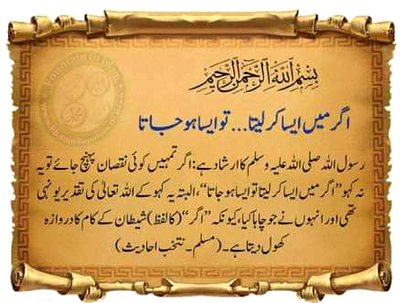 بِسْمِ اللّٰہِ الرَّحْمٰنِ الرَّحِیْمِ
اگر میں ایسا کر لیتا... تو ایسا ہو جاتا
رسول اللہ صلی اللہ علیہ وسلم کا ارشاد ہے: اگر تمہیں کوئی نقصان پہنچ جائے تو یہ
نہ کہو "اگر میں ایسا کر لیتا تو ایسا ہو جاتا"، البتہ یہ کہو کے اللہ تعالیٰ کی تقدیر یونہی
تھی اور انہوں نے جو چاہا کیا، کیونکہ "اگر" (کا لفظ) شیطان کے کام کا دروازہ
کھول دیتا ہے۔ (مسلم۔ منتخب احادیث)